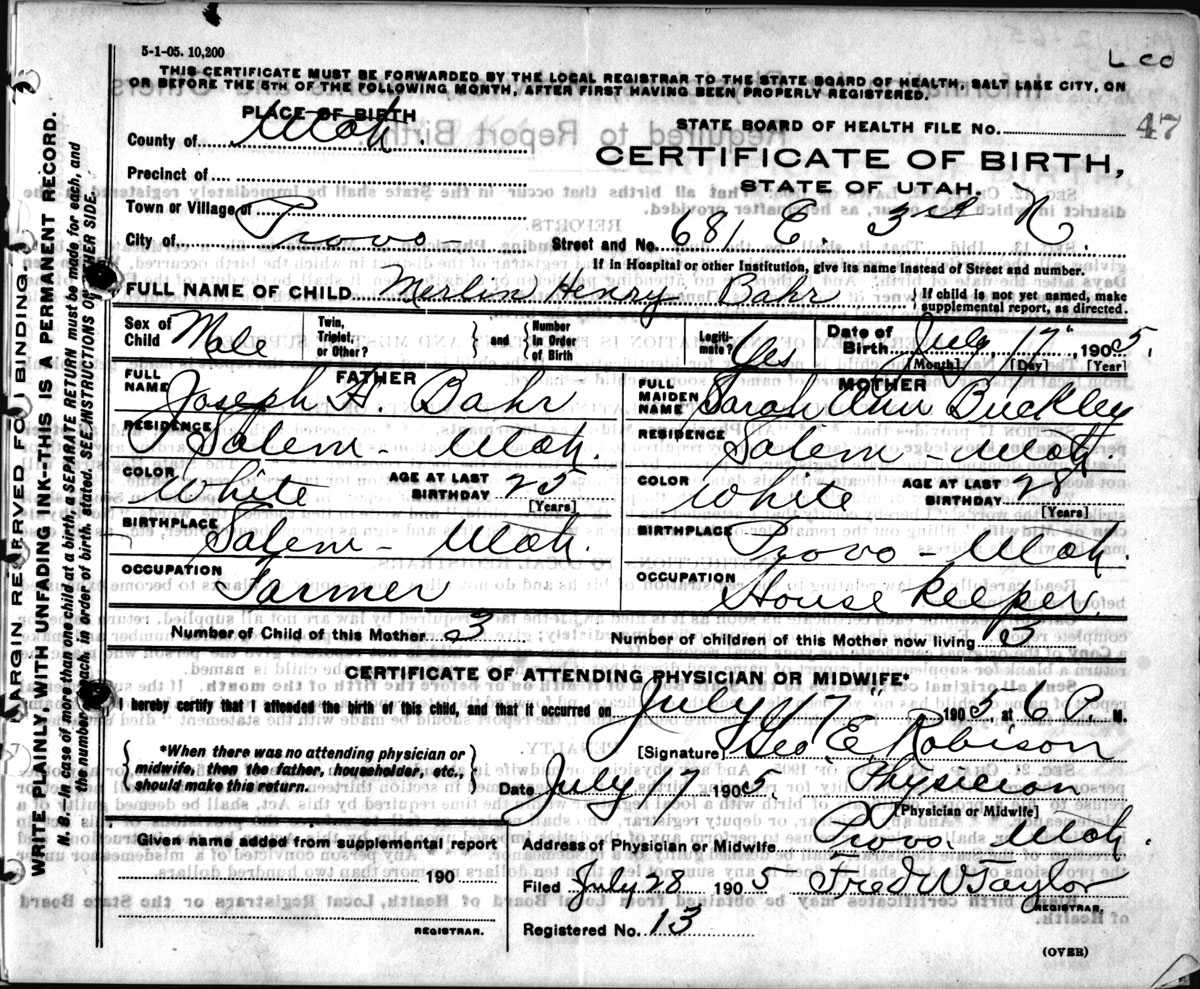 5-1-05. 10,200
L co
THIS CERTIFICATE MUST BE FORWARDED BY THE LOCAL REGISTRAR TO THE STATE BOARD OF HEALTH, SALT LAKE CITY, ON
OR BEFORE THE 5TH OF THE FOLLOWING MONTH, AFTER FIRST HAVING BEEN PROPERLY REGISTERED.
PLACE OF BIRTH
STATE BOARD OF HEALTH FILE NO. 47
County of Utah.
CERTIFICATE OF BIRTH,
STATE OF UTAH.
Precinct of
Town or Village of
City of Provo Street and No. 681 E. 3rd N
If in Hospital or other Institution, give its name instead of Street and number.
FULL NAME OF CHILD Merlin Henry Bahr { If child is not yet named, make supplemental report, as directed.
Sex of Child Male Twin, Triplet, or Other? { and } Number in Order of Birth Legiti-mate? Yes Date of Birth July 17", 1905.
[Month] [Day] [Year]
FATHER
FULL NAME Joseph H. Bahr
RESIDENCE Salem - Utah.
COLOR White AGE AT LAST BIRTHDAY [Years]
BIRTHPLACE Salem - Utah.
OCCUPATION Farmer
MOTHER
FULL MAIDEN NAME Sarah Ann Buckley
RESIDENCE Salem - Utah.
COLOR White AGE AT LAST BIRTHDAY 28 [Years]
BIRTHPLACE Provo - Utah.
OCCUPATION House Keeper.
Number of Child of this Mother 3 Number of children of this Mother now living 3
CERTIFICATE OF ATTENDING PHYSICIAN OR MIDWIFE*
I hereby certify that I attended the birth of this child, and that it occurred on July 17" 1905, at 6 P. M.
{ *When there was no attending physician or midwife, then the father, householder, etc., should make this return. }
[Signature] Geo. E. Robison
Date July 17 1905. Physician
[Physician or Midwife]
Address of Physician or Midwife Provo. Utah.
Given name added from supplemental report
190
REGISTRAR.
Filed July 28 1905 Fred W Taylor
REGISTRAR.
Registered No. 13
(OVER)
MARGIN RESERVED FOR BINDING.
WRITE PLAINLY, WITH UNFADING INK--THIS IS A PERMANENT RECORD.
N. B.--In case of more than one child at birth, a SEPARATE RETURN must be made for each, and
the number of each, in order of birth, stated. SEE INSTRUCTIONS ON OTHER SIDE.